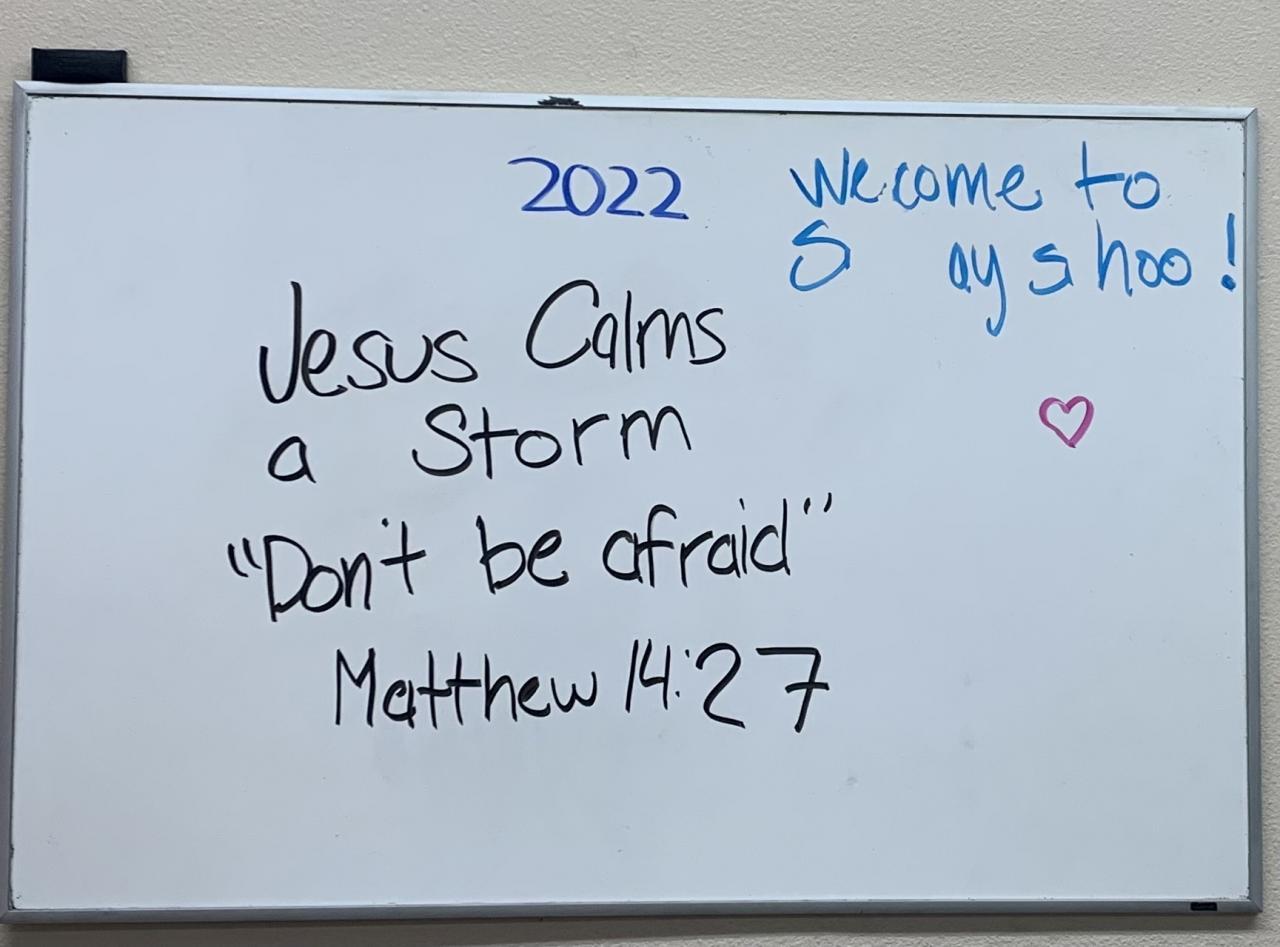 2022
Wecome to
S ay shoo!
Jesus Calms
a Storm
"Don't be afraid"
Matthew 14:27